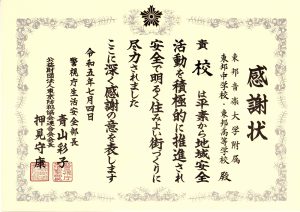 感謝状
東邦音楽大学附属
東邦中学校、東邦高等学校 殿
貴校は平素から地域安全
活動を積極的に推進され
安全で明るく住みよい街づくりに
尽力されました
ここに深く感謝の意を表します
令和五年七月四日
警視庁生活安全部長
青山彩子
公益財団法人東京防犯協会連合会会長
押見守康